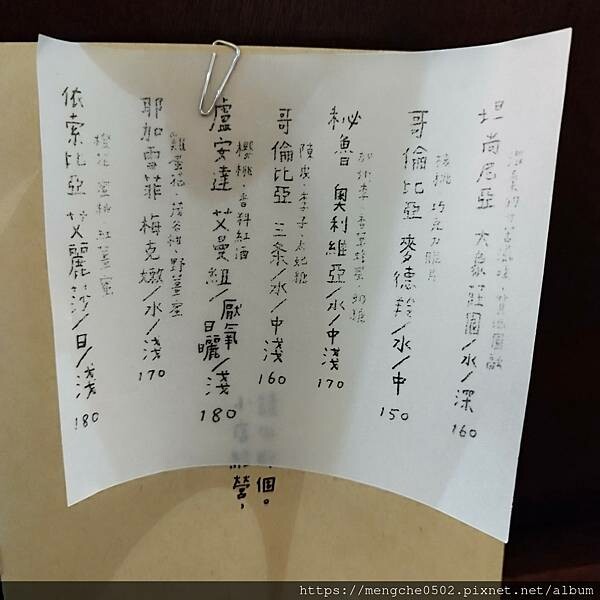 坦尚尼亞 大象莊園/水/深
160
哥倫比亞 麥德羚/水/中
核桃 巧克力脆片
150
秘魯 奧利維亞/水/中淺
170
哥倫比亞 三条/水/中淺
陳皮·李子·太妃糖
160
盧安達 艾曼紐/厭氧日曬/淺
櫻桃·香料紅酒
180
耶加雪菲 梅克嫩/水/淺
雞蛋花·野薑蜜
170
依索比亞 艾麗莎/日/淺
橙花 蜜桃 紅薑蜜
180
個。
營，
https://mengche0502.pixnet.net/album